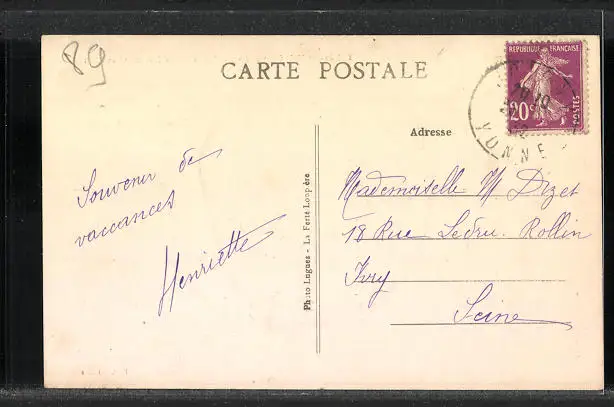 89
CARTE POSTALE
REPUBLIQUE FRANÇAISE
20c
POSTES
YONNE
Adresse
Souvenir de
vaccances
Henriette
Photo Lugues - La Ferté Loupière
Mademoiselle M Dizet
18 Rue Ledru. Rollin
Ivry
Seine